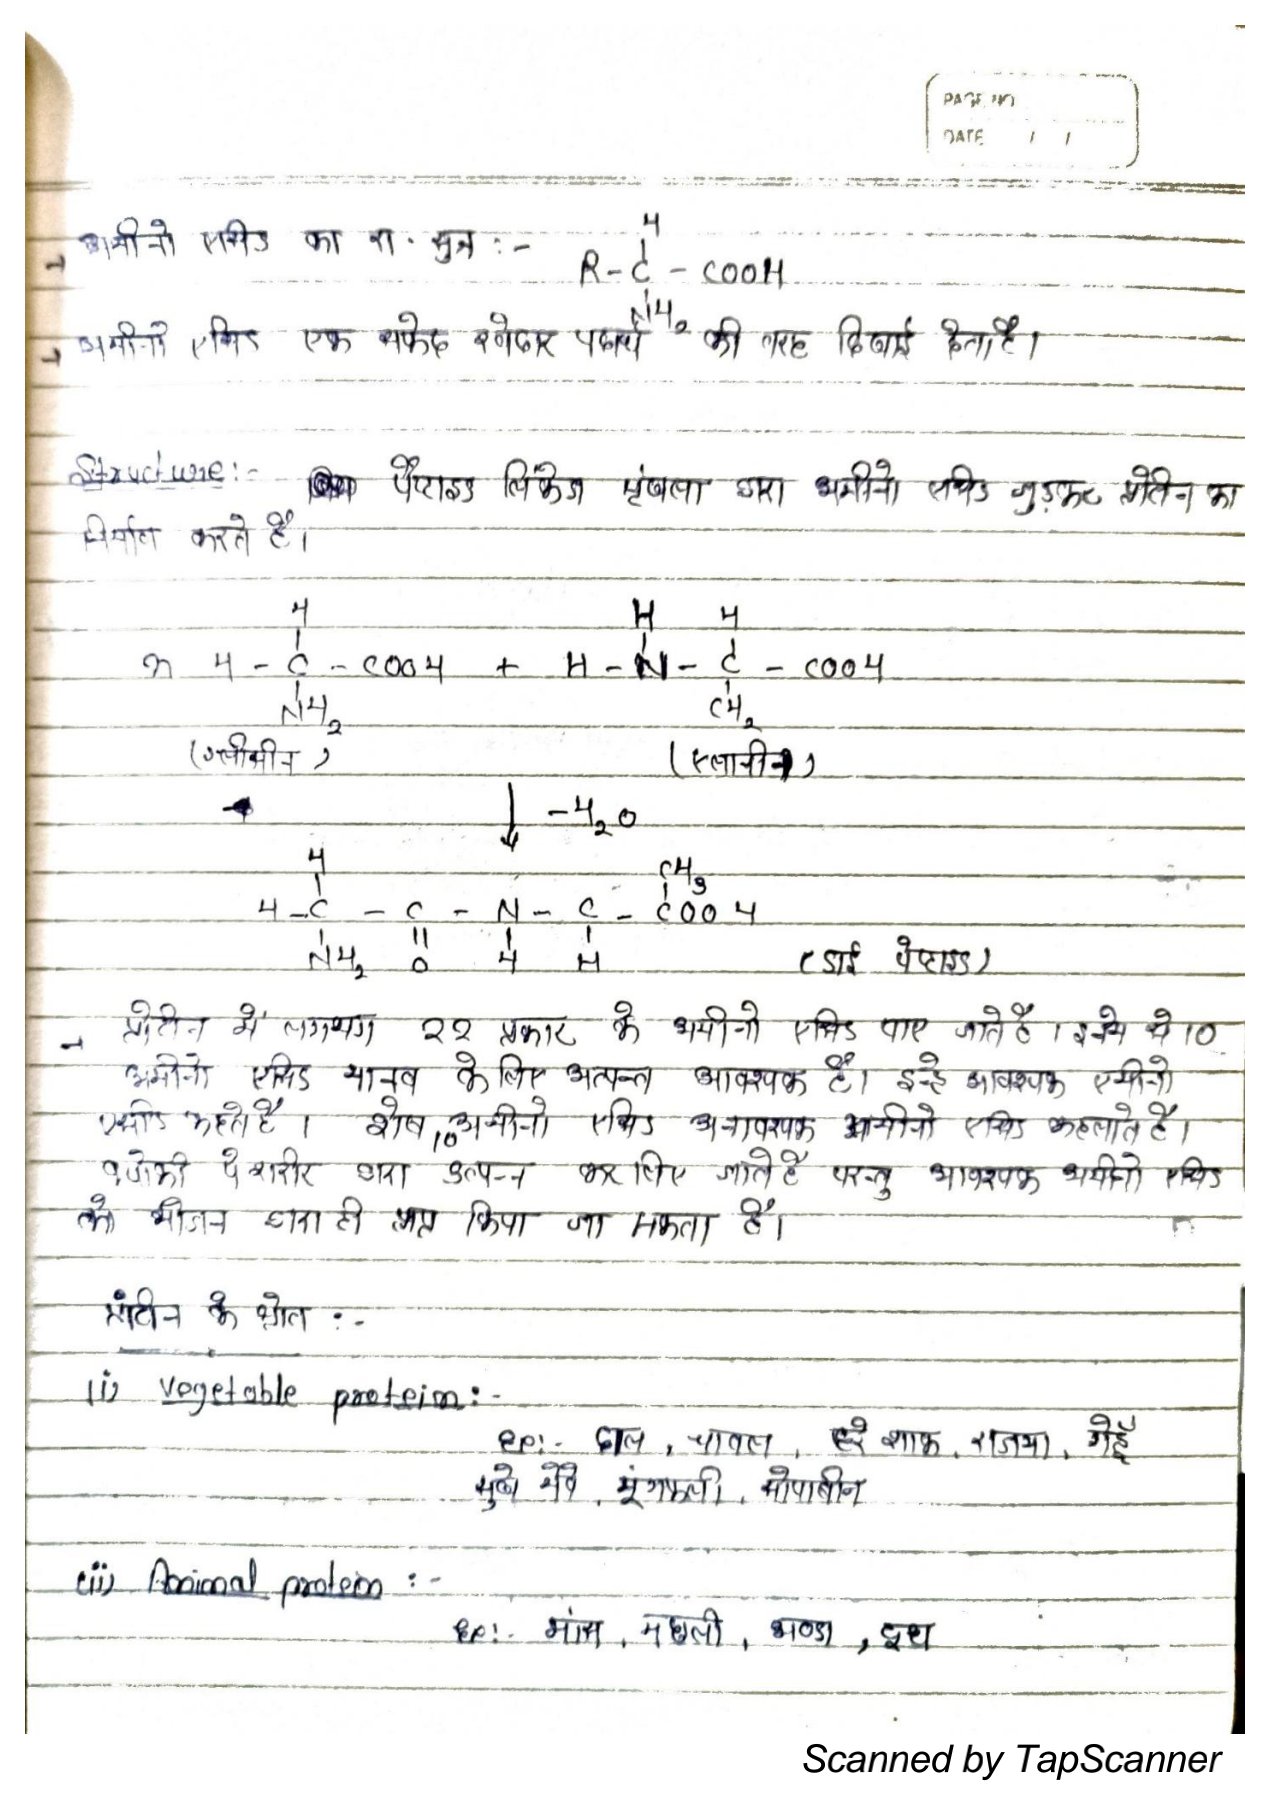 PAGE NO
DATE / /
अमीनो एसिड का रा. सुत्र :-
H
|
R - C - COOH
|
NH2
अमीनो एसिड एक सफेद रवेदार पदार्थ की तरह दिखाई देता है।
Structure :- पेप्टाइड लिंकेज श्रृंखला द्वारा अमीनो एसिड जुड़कर प्रोटीन का
निर्माण करते हैं।
H H H
| | |
n H - C - COOH + H - N - C - COOH
| |
NH2 CH2
(ग्लीसीन) (एलानीन)
↓ -H2O
H CH3
| |
H - C - C - N - C - COOH
| || | |
NH2 O H H (डाई पेप्टाइड)
प्रोटीन में लगभग 22 प्रकार के अमीनो एसिड पाए जाते हैं। इनमे से 10
अमीनो एसिड मानव के लिए अत्यन्त आवश्यक हैं। इन्हे आवश्यक एमीनो
एसीड कहते हैं। शेष 10 अमीनो एसिड अनावश्यक अमीनो एसिड कहलाते हैं।
क्योकी ये शरीर द्वारा उत्पन्न कर लिए जाते हैं परन्तु आवश्यक अमीनो एसिड
को भोजन द्वारा ही प्राप्त किया जा सकता हैं।
प्रोटीन के श्रोत :-
(i) Vegetable protein :-
ex:- दाल, चावल, हरे शाक, राजमा, गेहूँ
सुखे मेवे, मूंगफली, सोयाबीन
(ii) Animal protein :-
ex:- मांस, मछली, अण्डा, दूध
Scanned by TapScanner